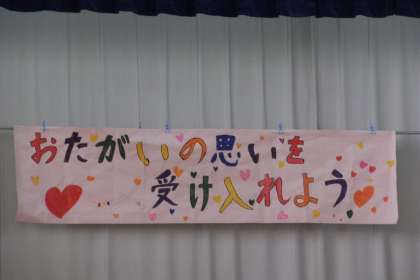 おたがいの思いを
受け入れよう